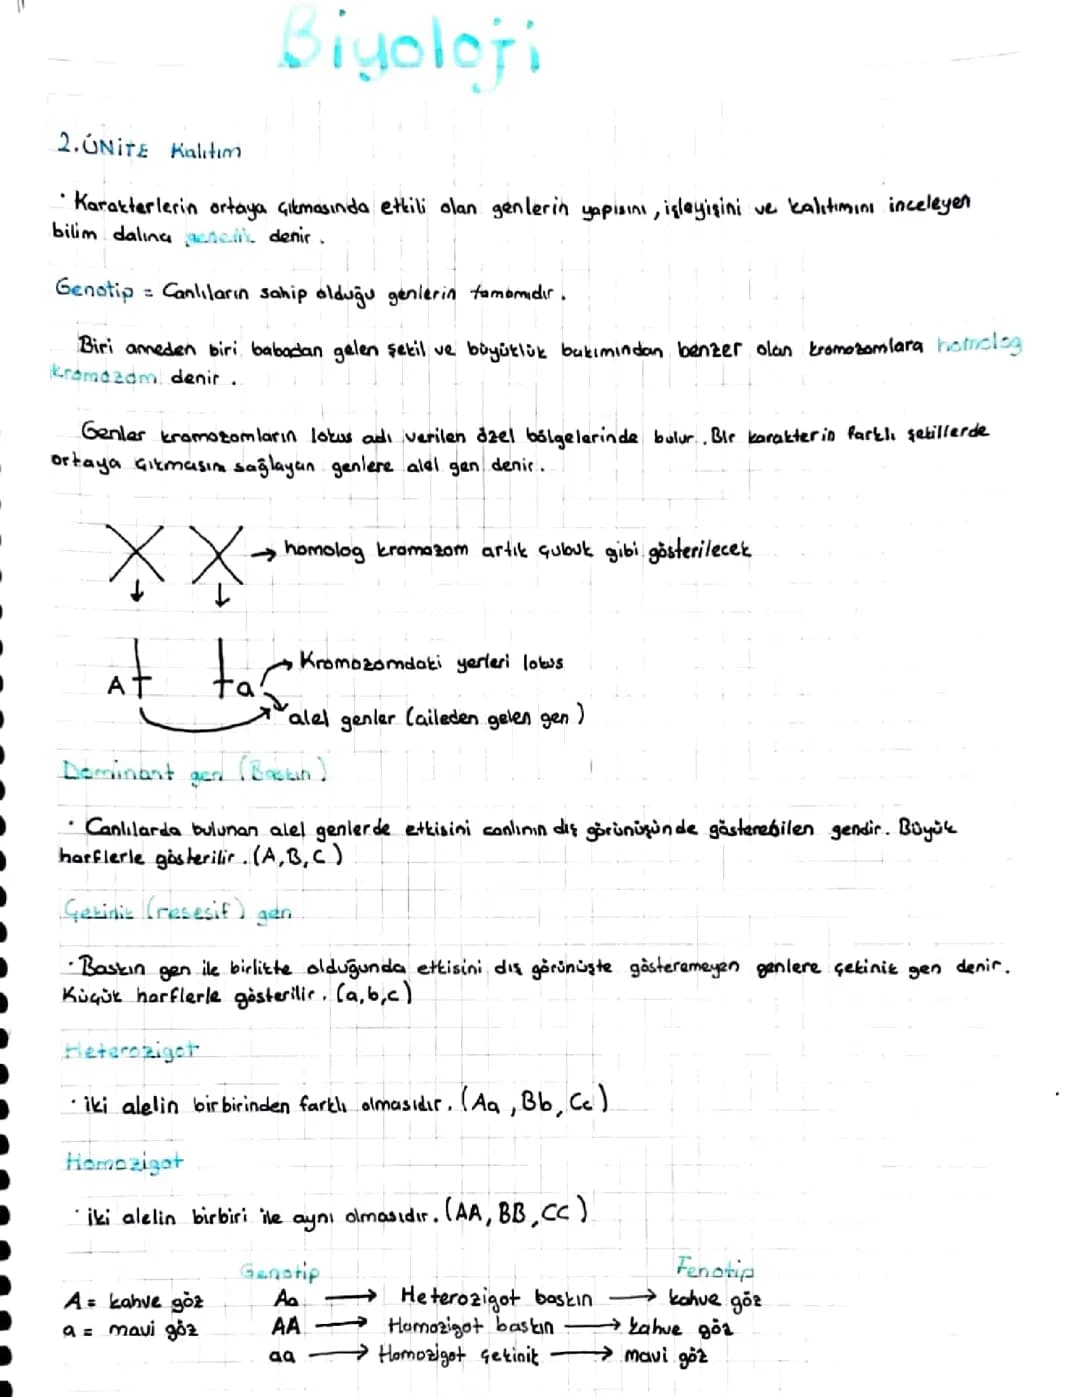 Biyoloji
2.ÜNİTE Kalıtım
· Karakterlerin ortaya çıkmasında etkili olan genlerin yapısını, işleyişini ve kalıtımını inceleyen
bilim dalına genetik denir.
Genotip = Canlıların sahip olduğu genlerin tamamıdır.
Biri anneden biri babadan gelen şekil ve büyüklük bakımından benzer olan kromozomlara homolog
kromozom denir.
Genler kromozomların lokus adı verilen özel bölgelerinde bulur. Bir karakterin farklı şekillerde
ortaya çıkmasını sağlayan genlere alel gen denir.
→ homolog kromozom artık çubuk gibi gösterilecek
Kromozomdaki yerleri lokus
A a
alel genler (aileden gelen gen)
Dominant gen (Baskın)
· Canlılarda bulunan alel genlerde etkisini canlının dış görünüşünde gösterebilen gendir. Büyük
harflerle gösterilir. (A,B,C)
Çekinik (resesif) gen
· Baskın gen ile birlikte olduğunda etkisini dış görünüşte gösteremeyen genlere çekinik gen denir.
Küçük harflerle gösterilir. (a,b,c)
Heterozigot
· iki alelin birbirinden farklı olmasıdır. (Aa, Bb, Cc)
Homozigot
· iki alelin birbiri ile aynı olmasıdır. (AA, BB, CC)
Genotip Fenotip
A = kahve göz Aa → Heterozigot baskın → kahve göz
a = mavi göz AA → Homozigot baskın → kahve göz
aa → Homozigot çekinik → mavi göz